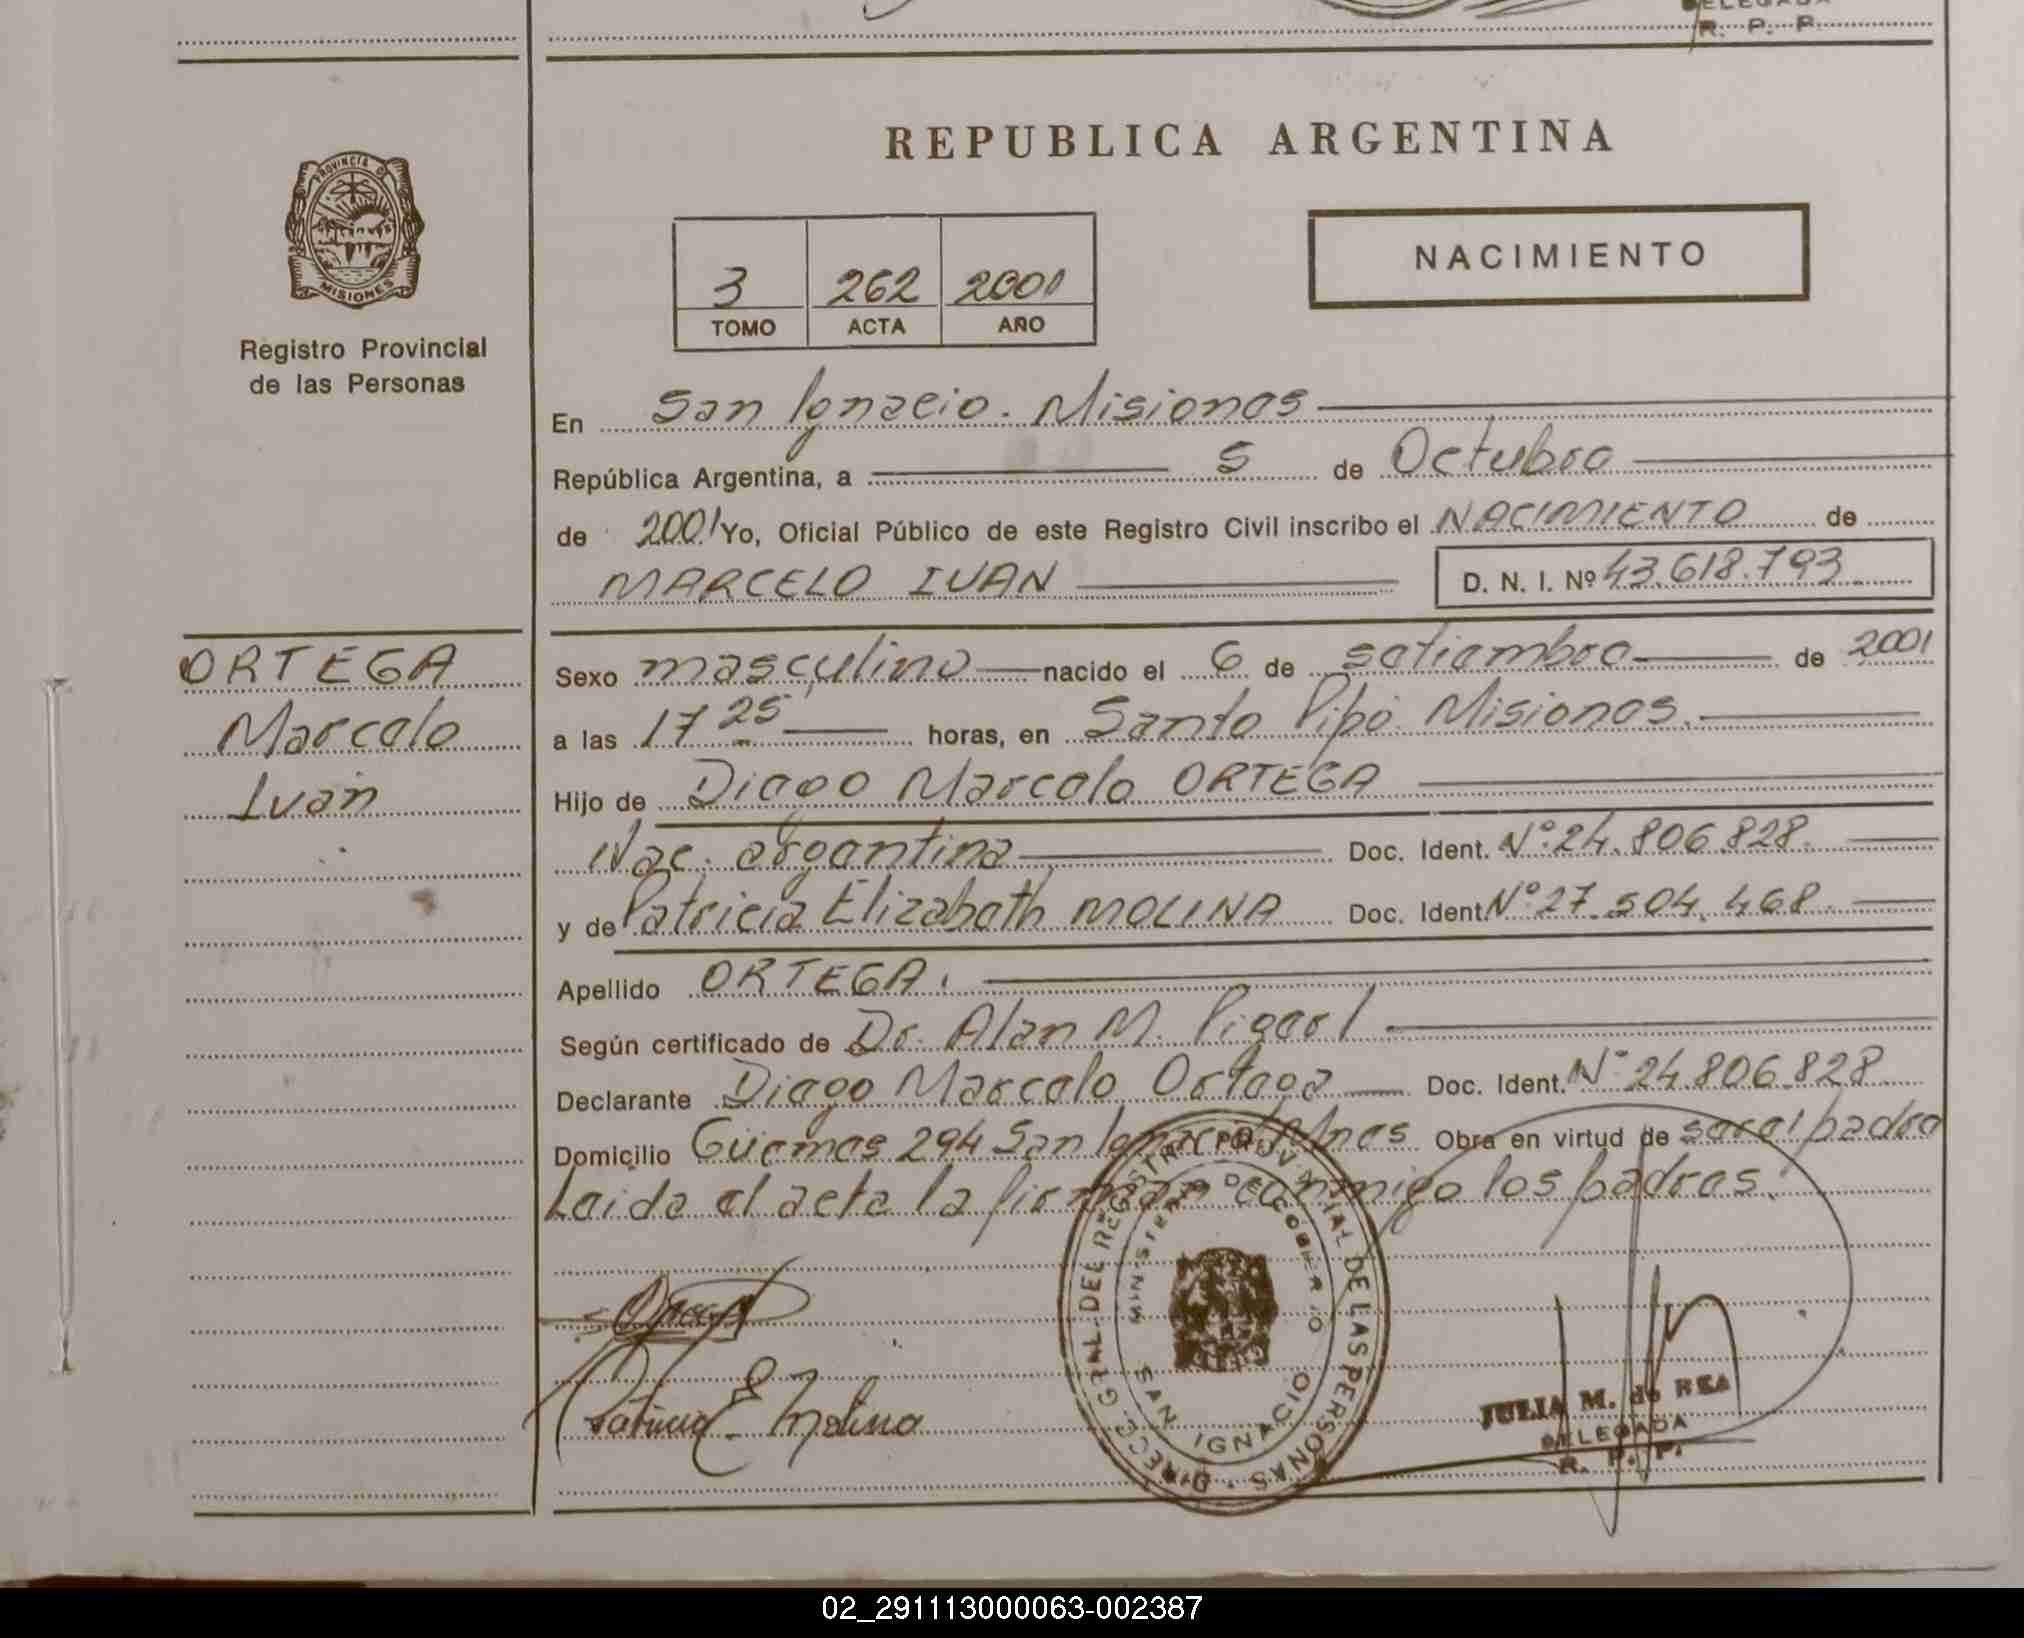 DELEGADA
R. P. P.
REPUBLICA ARGENTINA
PROVINCIA D
MISIONES
Registro Provincial
de las Personas
3 262 2001
TOMO ACTA AÑO
NACIMIENTO
En San Ignacio. Misiones
República Argentina, a 5 de Octubre
de 2001 Yo, Oficial Público de este Registro Civil inscribo el NACIMIENTO de
MARCELO IVAN D. N. I. Nº 43.618.793
ORTEGA
Marcelo
Iván
Sexo masculino nacido el 6 de setiembre de 2001
a las 17 25 horas, en Santo Pipó. Misiones.
Hijo de Diego Marcelo ORTEGA
Nac. argentina Doc. Ident. Nº 24.806.828.
y de Patricia Elizabeth MOLINA Doc. Ident Nº 27.504.468.
Apellido ORTEGA.
Según certificado de Dr. Alan M.
Declarante Diego Marcelo Ortega Doc. Ident. Nº 24.806.828
Domicilio Güemes 294 San Ignacio Mnes Obra en virtud de ser el padre
Leida el acta la firman conmigo los padres.
Patricia E Molina
DIRECC. GRAL. DEL REGISTRO PROVINCIAL DE LAS PERSONAS
MINISTERIO DE GOBIERNO
SAN IGNACIO
JULIA M. de REA
DELEGADA
R. P. P.
02_291113000063-002387